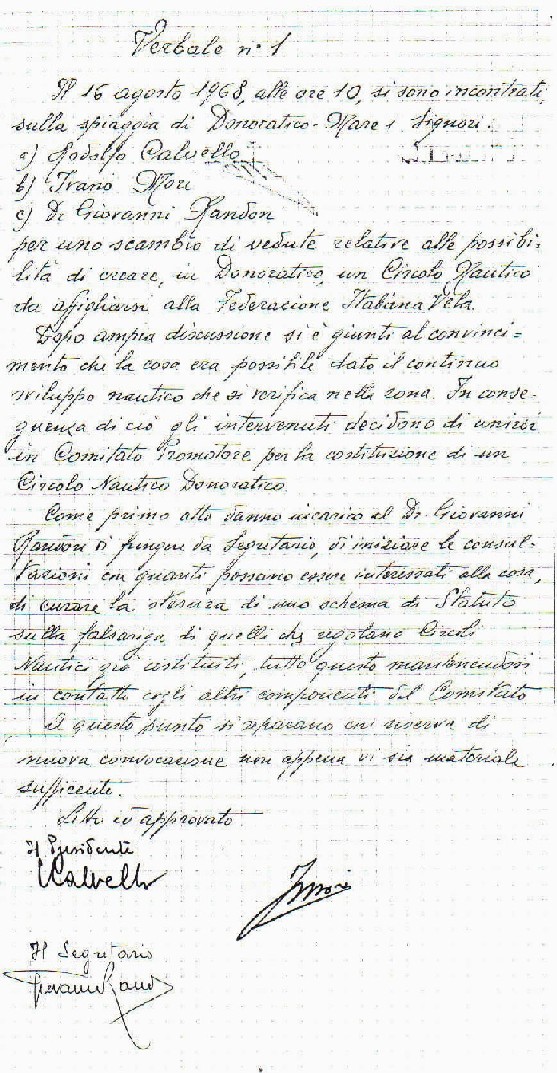 Verbale n° 1
Il 16 agosto 1968, alle ore 10, si sono incontrati,
sulla spiaggia di Donoratico-Mare i Signori:
a) Rodolfo Calvello
b) Ivano Mori
c) Dr Giovanni Randon
per uno scambio di vedute relative alle possibi-
lità di creare, in Donoratico, un Circolo Nautico
da affigliarsi alla Federazione Italiana Vela.
Dopo ampia discussione si è giunti al convinci-
mento che la cosa era possibile dato il continuo
sviluppo nautico che si verifica nella zona. In conse-
guenza di ciò gli intervenuti decidono di unirsi
in Comitato Promotore per la costituzione di un
Circolo Nautico Donoratico.
Come primo atto danno incarico al Dr Giovanni
Randon di fungere da Segretario, di iniziare le consul-
tazioni con quanti possano essere interessati alla cosa,
di curare la stesura di uno schema di Statuto
sulla falsariga di quelli che regolano Circoli
Nautici già costituiti, tutto questo mantenendosi
in contatto cogli altri componenti del Comitato
A questo punto si separano con riserva di
nuova convocazione non appena vi sia materiale
sufficente.
Letto ed approvato
Il Presidente
RCalvello
IMori
Il Segretario
Giovanni Rand